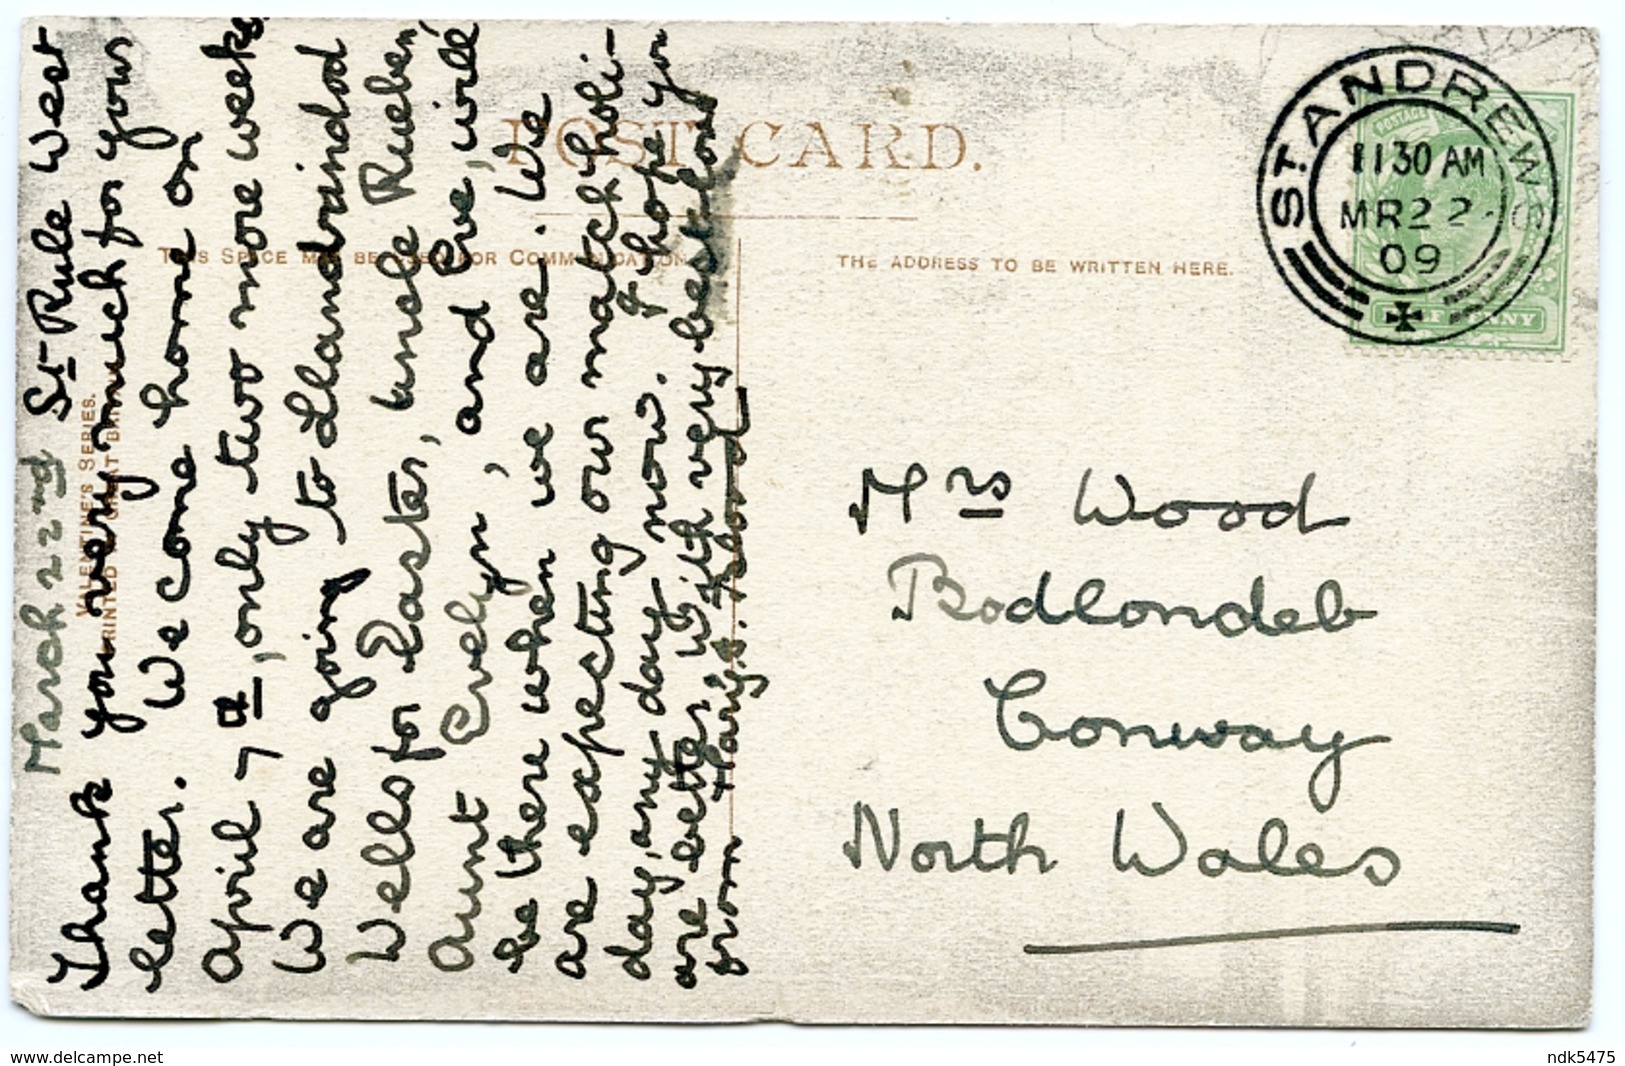 March 22nd St Rule West
Thank you very much for your
letter. We come home on
April 7th, only two more weeks
We are going to Llandrindod
Wells for Easter, Uncle Reuben
Aunt Evelyn, and Eve, will
be there when we are. We
are expecting our match holi-
day, any day now. I hope you
are better. With very best love
from Mary S. Wood
POST CARD.
THIS SPACE MAY BE USED FOR COMMUNICATION.
THE ADDRESS TO BE WRITTEN HERE.
VALENTINE'S SERIES.
PRINTED IN GREAT BRITAIN
ST. ANDREWS
11 30 AM
MR 22
09
POSTAGE
HALFPENNY
Mrs Wood
Bodlondeb
Conway
North Wales
www.delcampe.net
ndk5475